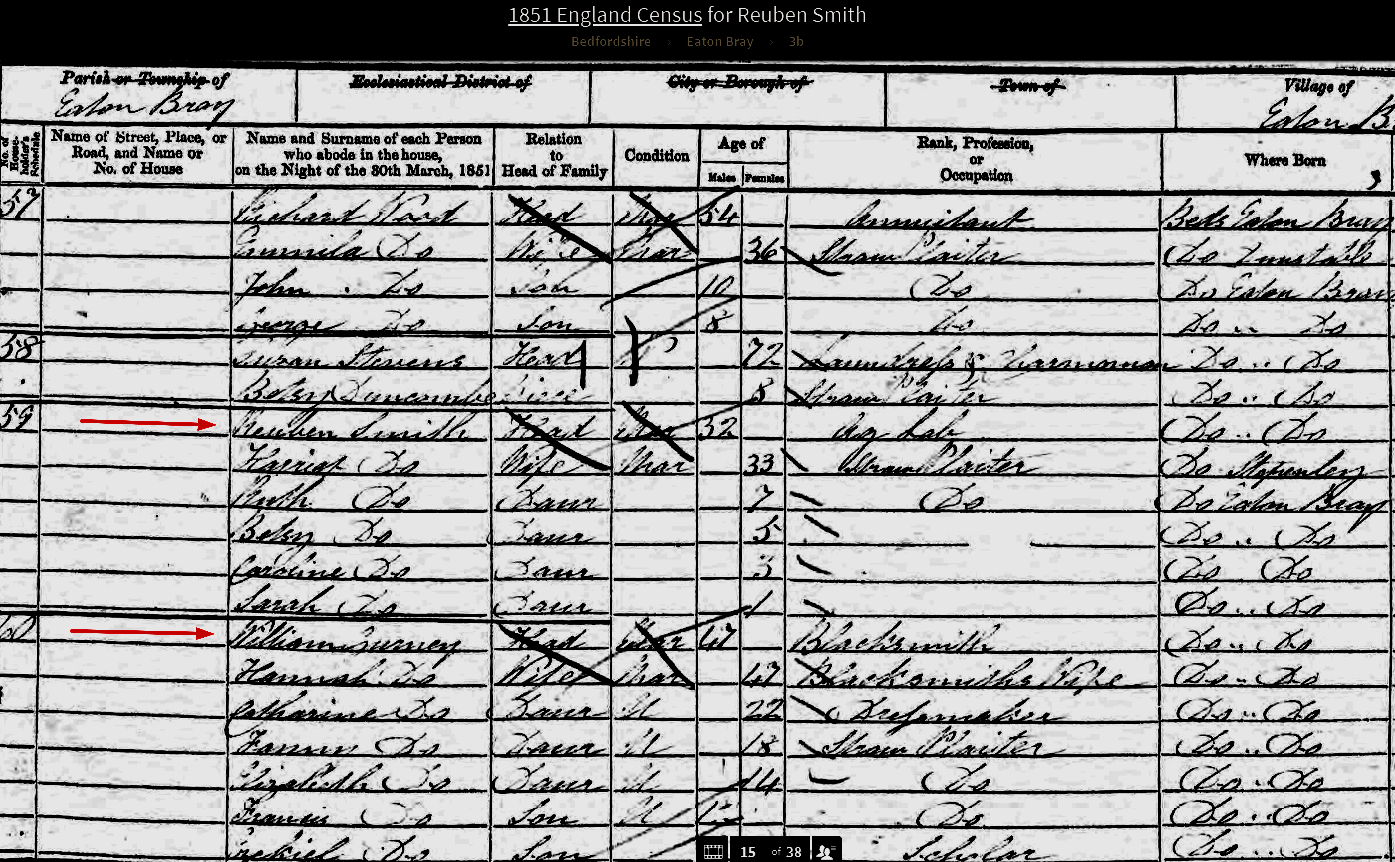 1851 England Census for Reuben Smith
Bedfordshire › Eaton Bray › 3b
Parish or Township of Ecclesiastical District of City or Borough of Town of Village of
Eaton Bray Eaton B
No. of House-holder's Schedule Name of Street, Place, or Road, and Name or No. of House Name and Surname of each Person who abode in the house, on the Night of the 30th March, 1851 Relation to Head of Family Condition Age of Males Females Rank, Profession, or Occupation Where Born
57 Richard Wood Head Mar 54 Annuitant Beds Eaton Bray
Do Wife Mar 36 Straw Plaiter Do Dunstable
John Do Son 10 Do Do Eaton Bray
George Do Son 8 Do Do .. Do
58 Susan Stevens Head 72 Laundress Do .. Do
Betsy Duncombe Niece 8 Straw Plaiter Do .. Do
59 Reuben Smith Head Mar 32 Ag Lab Do .. Do
Harriet Do Wife Mar 33 Straw Plaiter Do
Ruth Do Daur 7 Do Do Eaton Bray
Betsy Do Daur 5 Do .. Do
Caroline Do Daur 3 Do Do
Sarah Do Daur 1 Do .. Do
60 William Gurney Head Mar 47 Blacksmith Do .. Do
Hannah Do Wife Mar 47 Blacksmiths Wife Do .. Do
Catharine Do Daur U 22 Dressmaker Do .. Do
Do Daur U 18 Straw Plaiter Do .. Do
Elizabeth Do Daur U 14 Do Do .. Do
Francis Do Son U Do Do .. Do
Do Son Scholar Do .. Do
15 of 38